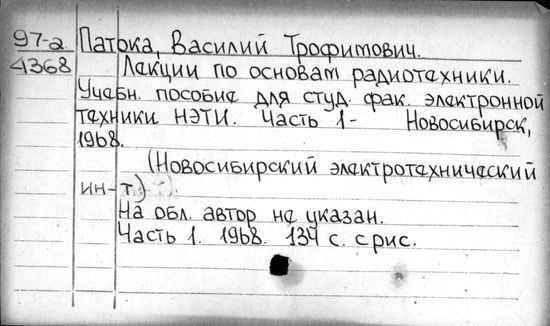 97-2 Патока, Василий Трофимович.
4368 Лекции по основам радиотехники.
Учебн. пособие для студ. фак. электронной
техники НЭТИ. Часть 1- Новосибирск,
1968.
(Новосибирский электротехнический
ин-т.)
На обл. автор не указан.
Часть 1. 1968. 134 с. с рис.